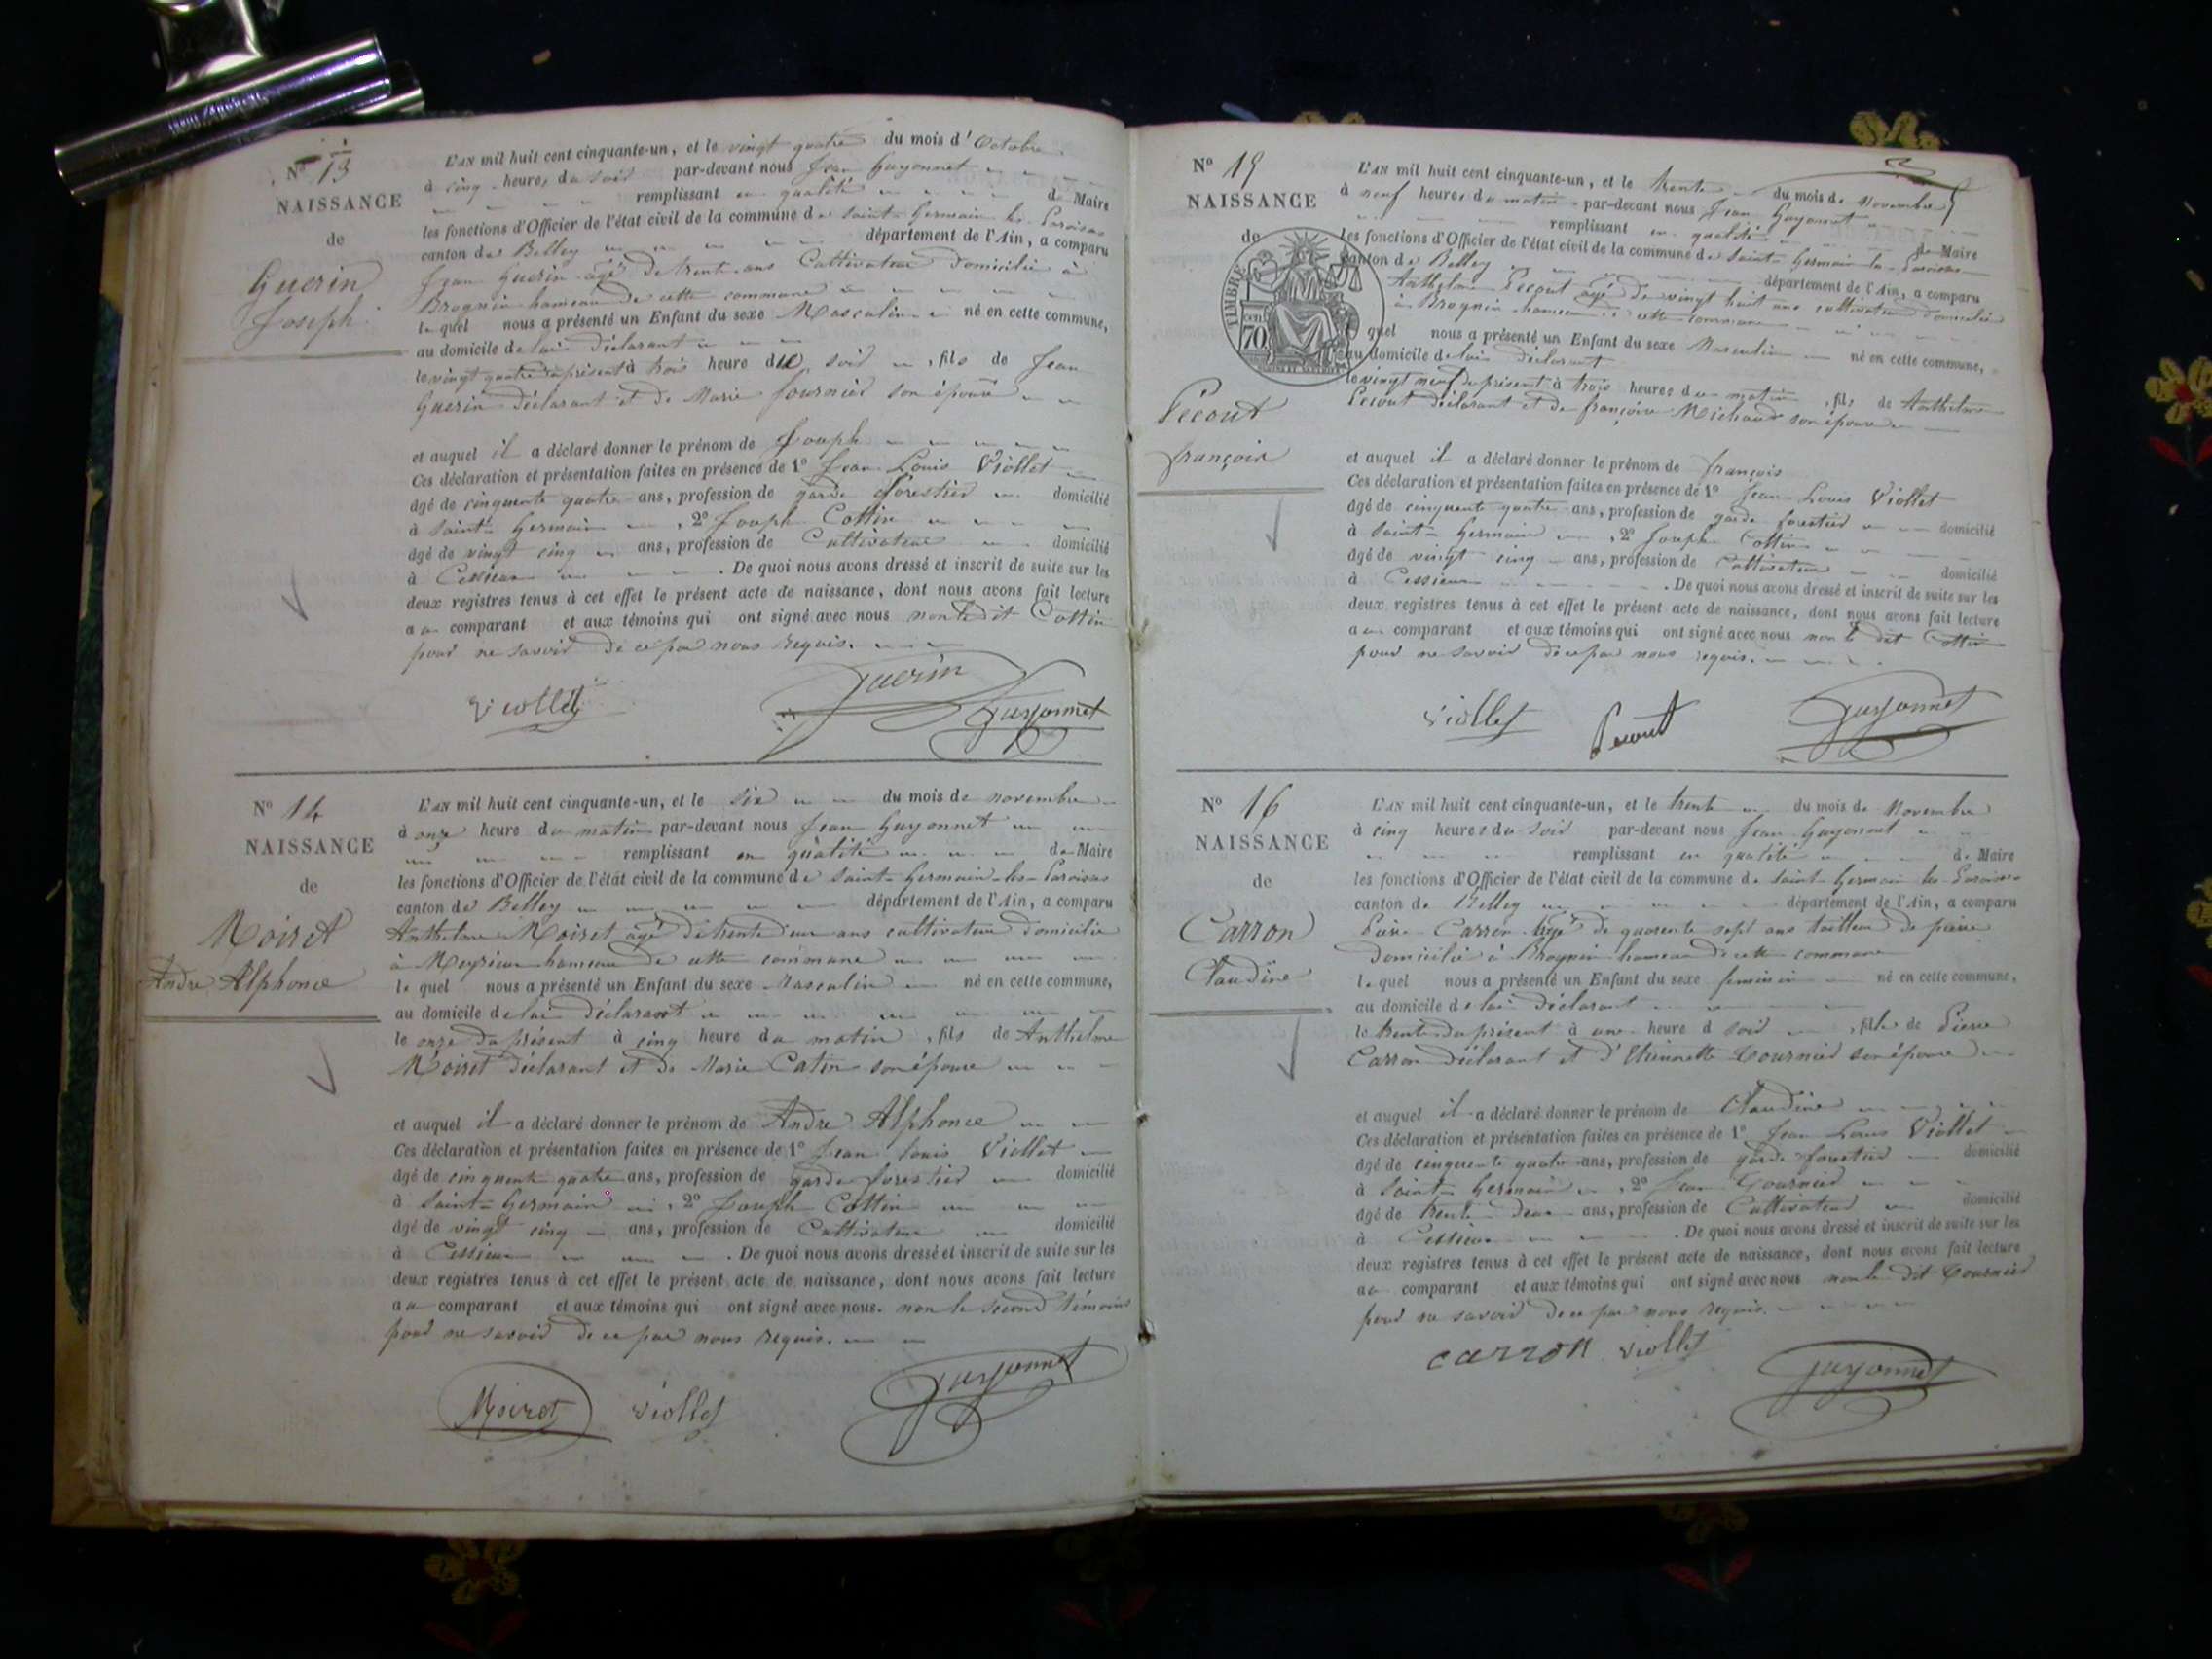 N° 13
NAISSANCE
de
Guerin
Joseph
L'AN mil huit cent cinquante-un, et le vingt quatre du mois d'Octobre
à cinq heures du soir par-devant nous Jean Guyonnet
remplissant en qualité de Maire
les fonctions d'Officier de l'état civil de la commune de Saint-Germain les Paroisses
canton de Belley département de l'Ain, a comparu
Jean Guerin agé de trente ans Cultivateur domicilié à
Brognin hameau de cette commune
lequel nous a présenté un Enfant du sexe Masculin né en cette commune,
au domicile de lui déclarant
le vingt quatre du présent à trois heure du soir, fils de Jean
Guerin déclarant et de Marie fournier son épouse
et auquel il a déclaré donner le prénom de Joseph
Ces déclaration et présentation faites en présence de 1° Jean Louis Viollet
âgé de cinquante quatre ans, profession de garde forestier domicilié
à Saint-Germain, 2° Joseph Cottin
âgé de vingt cinq ans, profession de Cultivateur domicilié
à Cessieux. De quoi nous avons dressé et inscrit de suite sur les
deux registres tenus à cet effet le présent acte de naissance, dont nous avons fait lecture
au comparant et aux témoins qui ont signé avec nous non le dit Cottin
pour ne savoir de ce par nous requis.
Viollet Guerin Guyonnet
N° 14
NAISSANCE
de
Moiret
Andre Alphonce
L'AN mil huit cent cinquante-un, et le six du mois de novembre
à onze heure du matin par-devant nous Jean Guyonnet
remplissant en qualité de Maire
les fonctions d'Officier de l'état civil de la commune de Saint-Germain-les-Paroisses
canton de Belley département de l'Ain, a comparu
Anthelme Moiret agé de trente deux ans cultivateur domicilié
à Meyrieu hameau de cette commune
lequel nous a présenté un Enfant du sexe Masculin né en cette commune,
au domicile de lui déclarant
le onze du présent à cinq heure du matin, fils de Anthelme
Moiret déclarant et de Marie Catin son épouse
et auquel il a déclaré donner le prénom de Andre Alphonce
Ces déclaration et présentation faites en présence de 1° Jean Louis Viollet
âgé de cinquante quatre ans, profession de garde forestier domicilié
à Saint-Germain, 2° Joseph Cottin
âgé de vingt cinq ans, profession de Cultivateur domicilié
à Cessieux. De quoi nous avons dressé et inscrit de suite sur les
deux registres tenus à cet effet le présent acte de naissance, dont nous avons fait lecture
au comparant et aux témoins qui ont signé avec nous. non le second témoins
pour ne savoir de ce par nous requis.
Moiret Viollet Guyonnet
N° 15
NAISSANCE
de
TIMBRE
70
Pecout
françois
L'AN mil huit cent cinquante-un, et le trente du mois de Novembre
à neuf heures du matin par-devant nous Jean Guyonnet
remplissant en qualité de Maire
les fonctions d'Officier de l'état civil de la commune de Saint-Germain les Paroisses
canton de Belley département de l'Ain, a comparu
Anthelme Pecout agé de vingt huit ans cultivateur domicilié
à Brognin hameau de cette commune
lequel nous a présenté un Enfant du sexe Masculin né en cette commune,
au domicile de lui déclarant
le vingt neuf du présent à trois heures du matin, fils de Anthelme
Pecout déclarant et de françoise Michaud son épouse
et auquel il a déclaré donner le prénom de françois
Ces déclaration et présentation faites en présence de 1° Jean Louis Viollet
âgé de cinquante quatre ans, profession de garde forestier domicilié
à Saint-Germain, 2° Joseph Cottin
âgé de vingt cinq ans, profession de Cultivateur domicilié
à Cessieux. De quoi nous avons dressé et inscrit de suite sur les
deux registres tenus à cet effet le présent acte de naissance, dont nous avons fait lecture
au comparant et aux témoins qui ont signé avec nous non le dit Cottin
pour ne savoir de ce par nous requis.
Viollet Pecout Guyonnet
N° 16
NAISSANCE
de
Carron
Claudine
L'AN mil huit cent cinquante-un, et le trente du mois de Novembre
à cinq heures du soir par-devant nous Jean Guyonnet
remplissant en qualité de Maire
les fonctions d'Officier de l'état civil de la commune de Saint-Germain les Paroisses
canton de Belley département de l'Ain, a comparu
Pierre Carron agé de quarente sept ans tailleur de pierre
domicilié à Brognin hameau de cette commune
lequel nous a présenté un Enfant du sexe feminin né en cette commune,
au domicile de lui déclarant
le trente du présent à une heure d soir, fille de Pierre
Carron déclarant et d'Etiennette Tournier son épouse
et auquel il a déclaré donner le prénom de Claudine
Ces déclaration et présentation faites en présence de 1° Jean Louis Viollet
âgé de cinquente quatre ans, profession de garde forestier domicilié
à Saint-Germain, 2° Jean Tournier
âgé de trente deux ans, profession de Cultivateur domicilié
à Cessieux. De quoi nous avons dressé et inscrit de suite sur les
deux registres tenus à cet effet le présent acte de naissance, dont nous avons fait lecture
au comparant et aux témoins qui ont signé avec nous non le dit Tournier
pour ne savoir de ce par nous requis.
carron Viollet Guyonnet